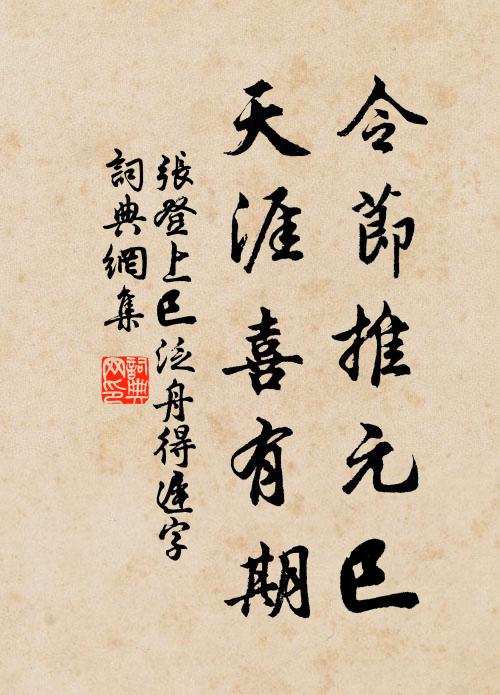 令節推元巳
天涯喜有期
張登上巳泛舟得遲字
詞典網集
詞典網印